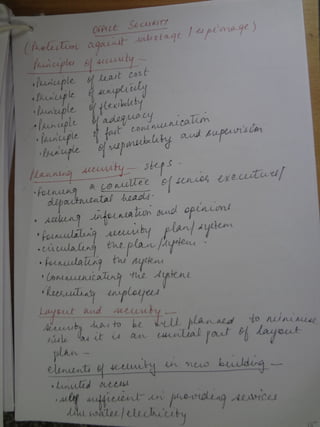 OFFICE SECURITY
(Protection against sabotage / espionage)
Principles of security —
• Principle of least cost
• Principle of simplicity
• Principle of flexibility
• Principle of adequacy
• Principle of fast communication
• Principle of responsibility and supervision
Planning security — steps.
• forming a committee of senior executives/
departmental heads.
• seeking information and opinions
• formulating security plan/system
• circulating the plan/system
• formulating the system
• Communicating the system
• Recruiting employees
Layout and security —
security has to be well planned to minimise
risk as it is an essential part of layout
plan —
elements of security in new building —
• limited access
• self sufficient in providing services
like water/electricity